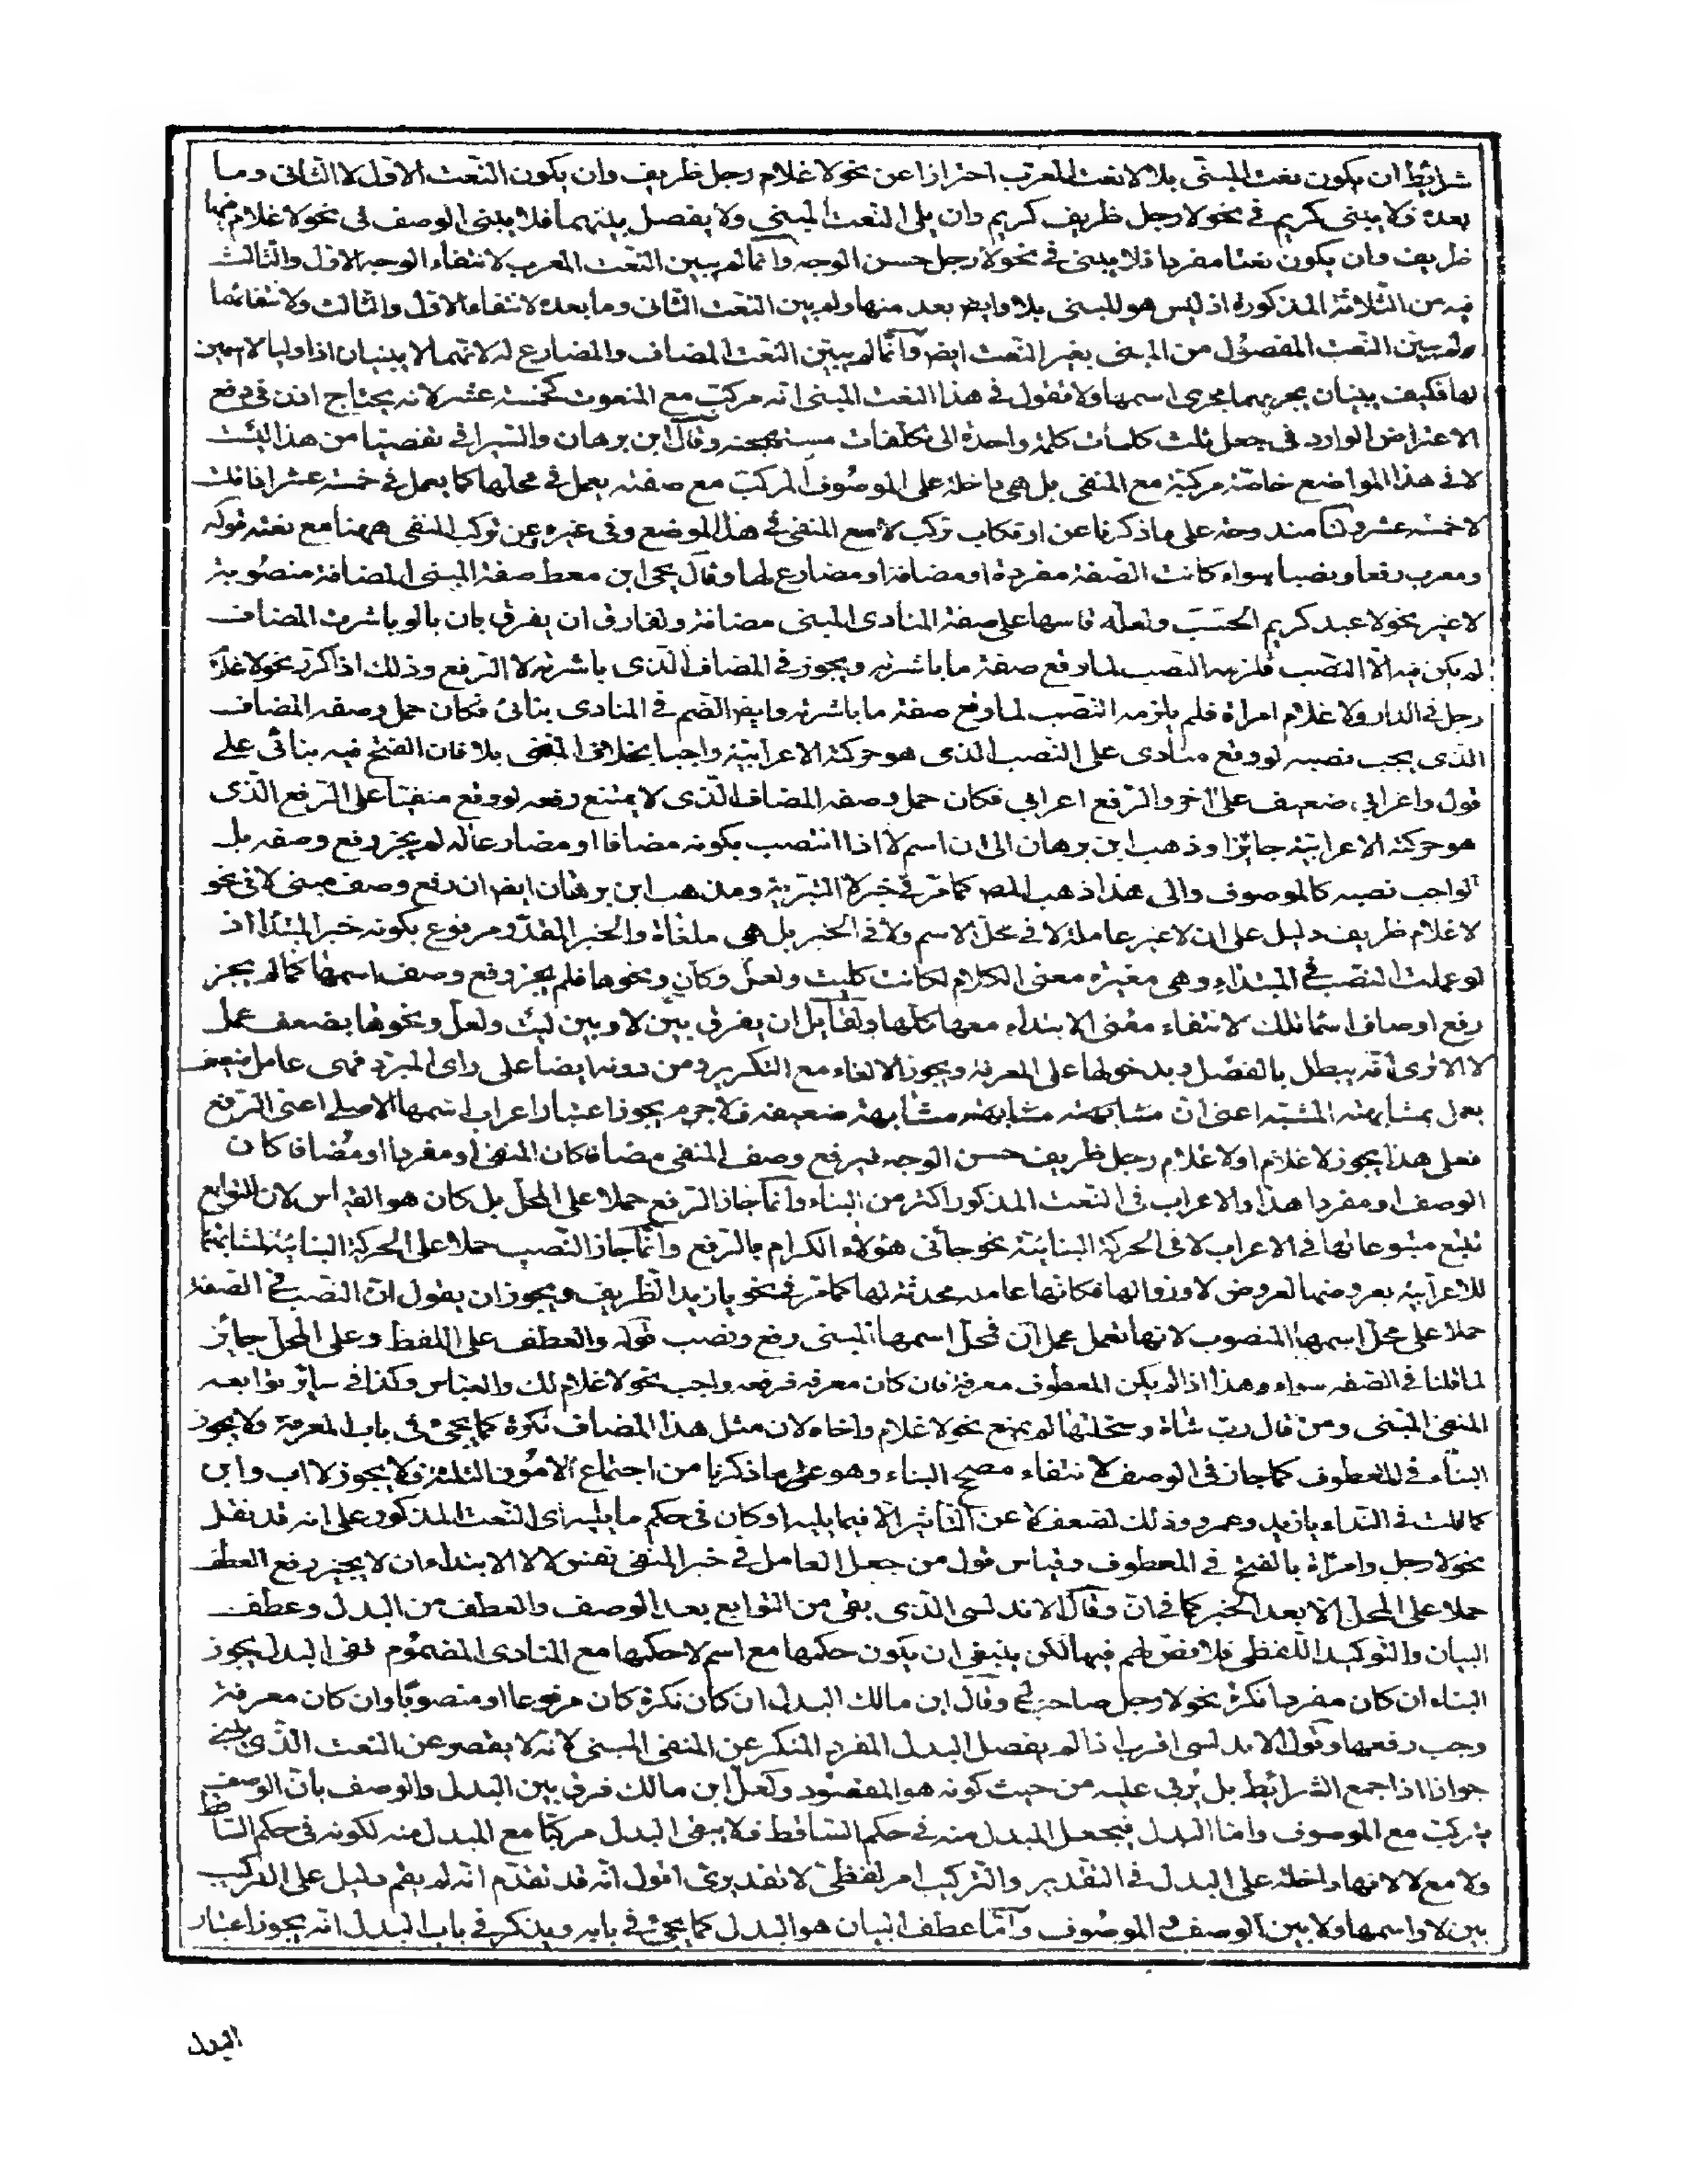 شرايط ان يكون نعت المبنى بلا لا نعت المعرب احترازا عن نحو لا غلام رجل ظريف وان يكون النعت الاول لا الثانى وما
بعده فلا يبنى كريم فى نحو لا رجل ظريف كريم وان يلى النعت المبنى ولا يفصل بينهما فلا يبنى الوصف فى نحو لا غلام فيها
ظريف وان يكون نعتا مفردا فلا يبنى فى نحو لا رجل حسن الوجه وانما لم يبن النعت المعرب لانتفاء الوجه الاول والثالث
فيه من الثلاثة المذكورة اذ ليس هو للمبنى بلا وايض بعد منها ولم يبن النعت الثانى وما بعده لانتفاء الاول والثالث ولانتفائهما
لم يبن النعت المفصول من المبنى بغير النعت ايض وانما لم يبن النعت المضاف والمضارع له لانهما لا يبنيان اذا وليا لا سمين
لها فكيف يبنيان بجريهما مجرى اسمها ولا نقول فى هذا النعت المبنى انه مركب مع المنعوت كخمسة عشر لانه يحتاج اذن فى دفع
الاعتراض الوارد فى جعل ثلث كلمات كلمة واحدة الى تكلفات مستهجنه وقال ابن برهان والسيرافى تفصيا من هذا البئت
لا فى هذا المواضع خاصة مركبة مع المنفى بل هى داخلة على الموصوف المركب مع صفته يعمل فى محلها كما يعمل فى خمسة عشر اذا قلت
لا خمسة عشر ولنا مندوحة على ما ذكرنا عن ارتكاب تركب لا مع المنفى فى هذا الموضع وفى غيره عن تركب المنفى ههنا مع نعته قوله
ومعرب رفعا ونصبا سواء كانت الصفة مفردة او مضافة او مضارع لها وقال يحيى ابن معط صفة المبنى المضافة منصوبة
لا غير نحو لا عبد كريم الحسب ولعله قاسها على صفة المنادى المبنى مضافة ولفارق ان يفرق بان يا لو باشرت المضاف
لم يكن فيه الا النصب فلزمه النصب لما وقع صفة ما باشرته ويجوز فى المضاف الذى باشرته لا الرفع وذلك اذا كرر نحو لا غلام
رجل فى الدار ولا غلام امراة فلم يلزمه النصب لما وقع صفة ما باشرته وايض الضم فى المنادى بنائى فكان حمل وصفه المضاف
الذى يجب نصبه لو وقع منادى على النصب الذى هو حركته الاعرابية واجبا بخلاف المنفى بلا فان الفتح فيه بنائى على
قول واعرابى ضعيف على اخر والرفع اعرابى فكان حمل وصفه المضاف الذى لا يمتنع رفعه لو وقع منفيا على الرفع الذى
هو حركته الاعرابية جايزا وذهب ابن برهان الى ان اسم لا اذا انتصب بكونه مضافا او مضارعا له لم يجز رفع وصفه بل
الواجب نصبه كالموصوف والى هذا ذهب المص كما مر فى خبر لا التبرية ومذهب ابن برهان ايض ان رفع وصف مبنى لا فى نحو
لا غلام ظريف دليل على ان لا غير عاملة لا فى محل الاسم ولا فى الخبر بل هى ملغاة والخبر المقدر مرفوع بكونه خبر المبتدا اذ
لو عملت النصب فى المبتداء وهى مغيرة معنى الكلام لكانت كليت ولعل وكان ونحوها فلم يجز رفع وصف اسمها كما لم يجز
رفع اوصاف اسما تلك لانتفاء معنى الابتداء معها كلها ولقايل ان يفرق بين لا وبين ليت ولعل ونحوها بضعف عمل
لا الا ترى انه يبطل بالفصل وبدخولها على المعرفة ويجوز الالغاء مع التكرير ومن دونه ايضا على راى المبرد فهى عامل ضعيف
يعمل بمشابهة المشبه اعنى ان مشابهته مشابهته مشابهة ضعيفه فلا جرم يجوز اعتبار اعراب اسمها الاصلى اعنى الرفع
فعلى هذا يجوز لا غلام اولا غلام رجل ظريف حسن الوجه فيرفع وصف المنفى مضافا كان المنفى او مفردا او مضافا كان
الوصف او مفردا هذا والاعراب فى النعت المذكور اكثر من البناء وانما جاز الرفع حملا على المحل بل كان هو القياس لان التوابع
تتبع متبوعاتها فى الاعراب لا فى الحركة البنائية نحو جائنى هؤلاء الكرام بالرفع وانما جاز النصب حملا على الحركة البنائية لمشابهتها
للاعرابية بعروضها لعروض لا وزوالها فكانها عامله محدثة لها كما مر فى نحو يا زيد الظريف ويجوز ان يقول ان النصب فى الصفة
حملا على محل اسمها المنصوب لانها تعمل عمل ان فمحل اسمها المبنى رفع ونصب قوله والعطف على اللفظ وعلى المحل جايز
لما قلنا فى الصفه سواء وهذا اذا لم يكن المعطوف معرفة فان كان معرفه فرفعه واجب نحو لا غلام لك والعباس وكذا فى ساير توابعه
المنفى المبنى ومن قال رب شاة وسخلتها لم يمنع نحو لا غلام واخاه لان مثل هذا المضاف نكرة كما يجئ فى باب المعرفة ولا يجوز
البناء فى المعطوف كما جاز فى الوصف لانتفاء مصحح البناء وهو على ما ذكرنا من اجتماع الامور الثلثة فلا يجوز لا اب وابن
كما قلت فى النداء يا زيد وعمرو وذلك لضعف لا عن التاثير الا فيما يليه او كان فى حكم ما يليه اى النعت المذكور على انه قد نقل
نحو لا رجل وامراة بالفتح فى المعطوف وقياس قول من جعل العامل فى خبر المنفى نفس لا لا الابتداء ان لا يجيز رفع العطف
حملا على المحل الا بعد الخبر كما فى ان وقال الاندلسى الذى بقى من التوابع بعد الوصف والعطف من البدل وعطف
البيان والتوكيد اللفظى فلا نص لهم فيها لكن ينبغى ان يكون حكمها مع اسم لا حكمها مع المنادى المضموم ففى البدل يجوز
البناء ان كان مفردا نكرة نحو لا رجل صاحب لى وقال ابن مالك البدل ان كان نكرة كان مرفوعا او منصوبا وان كان معرفة
وجب رفعها وقول الاندلسى اقرب اذا لم يفصل البدل المفرد المنكر عن المنفى المبنى لانه لا يقصر عن النعت الذى يبنى
جوازا اذا جمع الشرايط بل يربى عليه من حيث كونه هو المقصود ولعل ابن مالك فرق بين البدل والوصف بان الوصف
يتركب مع الموصوف واما البدل فيجعل المبدل منه فى حكم الساقط فلا يبقى البدل مركبا مع المبدل منه لكونه فى حكم الساقط
ولا مع لا لانها داخلة على البدل فى التقدير والتركيب امر لفظى لا تقديرى اقول انه قد تقدم انه لم يقم دليل على التركيب
بين لا واسمها ولا بين الوصف و الموصوف واما عطف البيان هو البدل كما يجئ فى بابه ويذكر فى باب البدل انه يجوز اعتبار
البدل